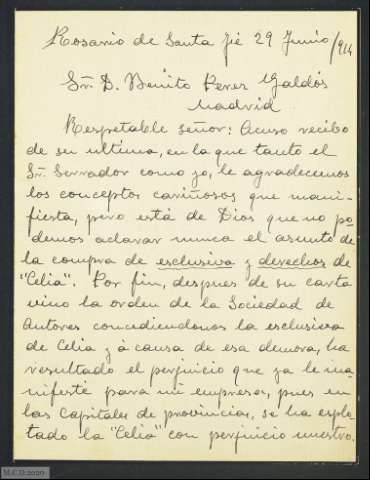 Rosario de Santa Fé 29 Junio/914
Sr. D. Benito Perez Galdós
Madrid
Respetable señor: Acuso recibo
de su ultima, en la que tanto el
Sr. Serrador como yo, le agradecemos
los conceptos cariñosos que mani-
fiesta, pero está de Dios que no po-
demos aclarar nunca el asunto de
la compra de esclusiva y derechos de
"Celia". Por fin, despues de su carta
vino la orden de la Sociedad de
Autores concediendonos la esclusiva
de Celia y á causa de esa demora, ha
resultado el perjuicio que ya le ma-
nifesté para mi empresa, pues en
las Capitales de provincias, se ha explo-
tado la "Celia" con perjuicio nuestro.
M.C.D 2020